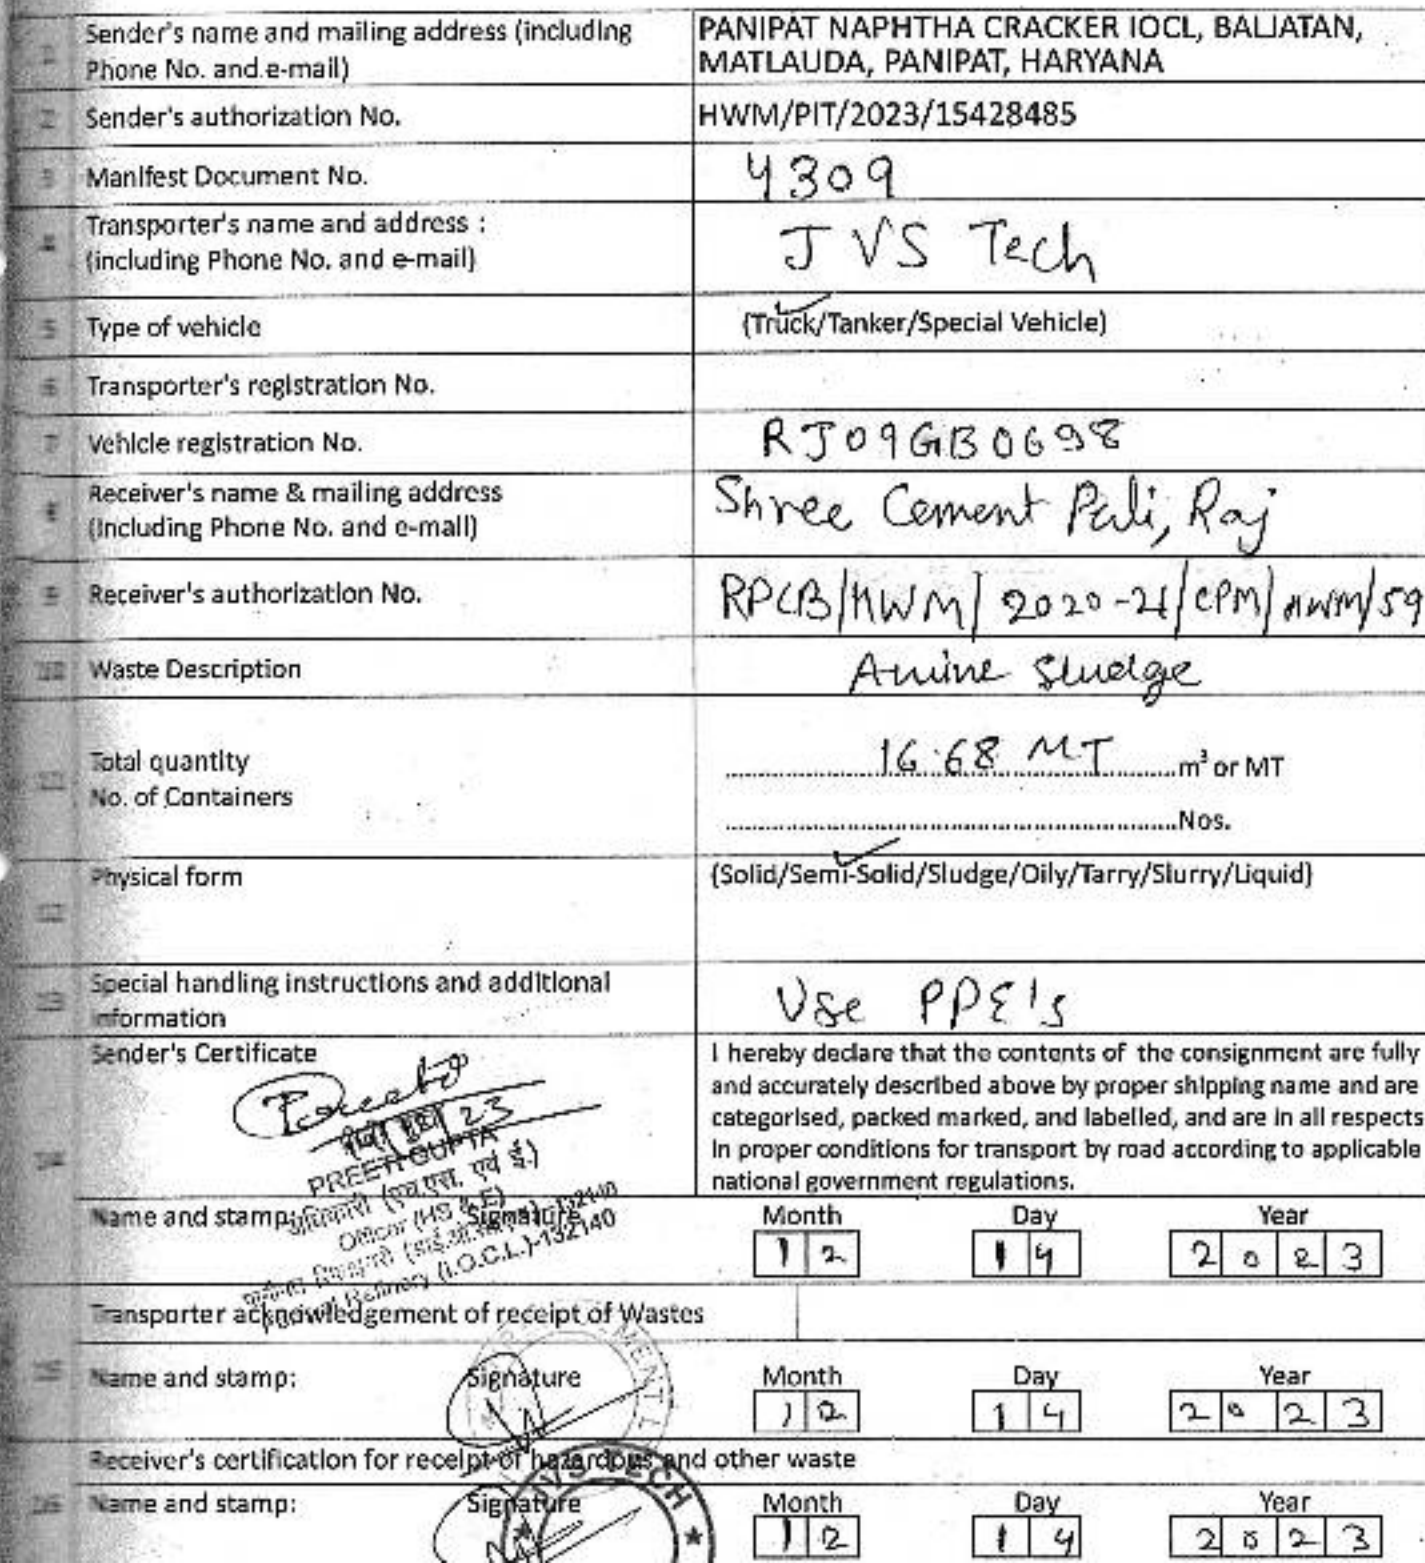 Sender's name and mailing address (including
Phone No. and e-mail)
PANIPAT NAPHTHA CRACKER IOCL, BALJATAN,
MATLAUDA, PANIPAT, HARYANA
Sender's authorization No.
HWM/PIT/2023/15428485
Manifest Document No.
4309
Transporter's name and address :
(including Phone No. and e-mail)
JVS Tech
5 Type of vehicle
(Truck/Tanker/Special Vehicle)
6 Transporter's registration No.
7 Vehicle registration No.
RJ09GB0698
Receiver's name & mailing address
(Including Phone No. and e-mail)
Shree Cement Pali, Raj
9 Receiver's authorization No.
RPCB/HWM/2020-21/CPM/HWM/59
10 Waste Description
Amine Sludge
Total quantity
No. of Containers
16.68 MT m³ or MT
Nos.
12 Physical form
(Solid/Semi-Solid/Sludge/Oily/Tarry/Slurry/Liquid)
13 Special handling instructions and additional
information
Use PPE's
14 Sender's Certificate
I hereby declare that the contents of the consignment are fully
and accurately described above by proper shipping name and are
categorised, packed marked, and labelled, and are in all respects
in proper conditions for transport by road according to applicable
national government regulations.
Preeti
14/12/23
PREETI GUPTA
(एच.एस. एवं ई.)
Officer (HS & E)
Refinery (I.O.C.L.)-132140
Name and stamp: Signature
Month Day Year
12 14 2023
Transporter acknowledgement of receipt of Wastes
Name and stamp: Signature
Month Day Year
12 14 2023
Receiver's certification for receipt of hazardous and other waste
16 Name and stamp: Signature
JVS TECH
Month Day Year
12 14 2023